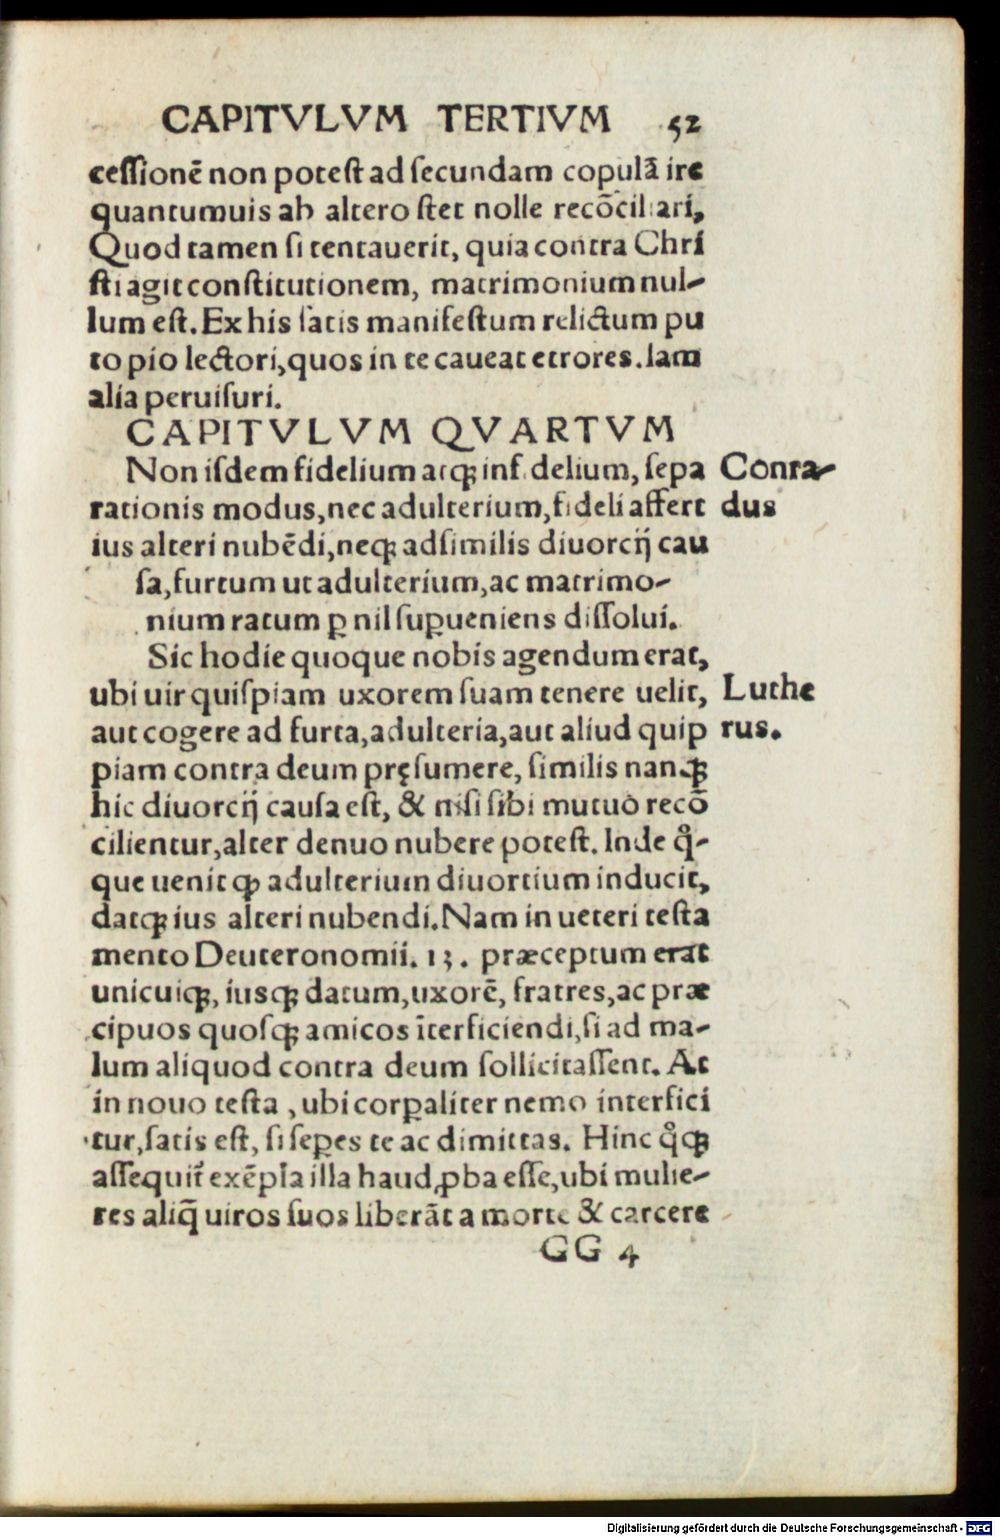 CAPITVLVM TERTIVM 52
ceſſionē non poteſt ad ſecundam copulā ire
quantumuis ab altero ſtet nolle recōciliari,
Quod tamen ſi tentauerit, quia contra Chri
ſti agit conſtitutionem, matrimonium nul-
lum eſt. Ex his ſatis manifeſtum relictum pu
to pio lectori, quos in te caueat errores. Iam
alia peruiſuri.
CAPITVLVM QVARTVM
Non iſdem fidelium atqꝫ infidelium, ſepa Conra-
rationis modus, nec adulterium, fideli affert dus
ius alteri nubēdi, neqꝫ adſimilis diuorcij cau
ſa, furtum ut adulterium, ac matrimo-
nium ratum ꝑ nil ſupꝑueniens diſſolui.
Sic hodie quoque nobis agendum erat,
ubi uir quiſpiam uxorem ſuam tenere uelit, Luthe
aut cogere ad furta, adulteria, aut aliud quip rus.
piam contra deum pręſumere, ſimilis nanqꝫ
hic diuorcij cauſa eſt, & niſi ſibi mutuò recō
cilientur, alter denuo nubere poteſt. Inde qͦ-
que uenit ꝙ adulterium diuortium inducit,
datqꝫ ius alteri nubendi. Nam in ueteri teſta
mento Deuteronomii. 13. præceptum erat
unicuiqꝫ, iusqꝫ datum, uxorē, fratres, ac præ
cipuos quoſqꝫ amicos īterficiendi, ſi ad ma-
lum aliquod contra deum ſollicitaſſent. At
in nouo teſta, ubi corꝑaliter nemo interfici
tur, ſatis eſt, ſi ſeꝑes te ac dimittas. Hinc qͦqꝫ
aſſequit᷑ exēpla illa haud ꝓba eſſe, ubi mulie-
res aliq̄ uiros ſuos liberāt a morte & carcere
GG 4
Digitalisierung gefördert durch die Deutsche Forschungsgemeinschaft - DFG